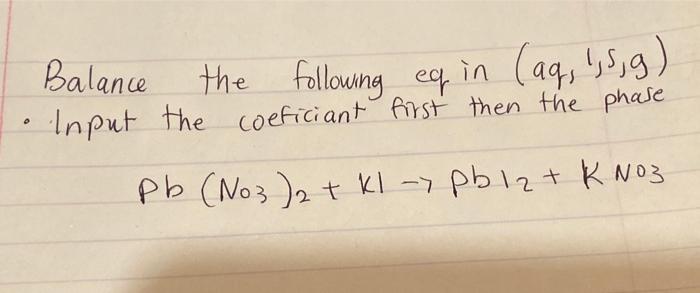 Balance the following eq in (aq, l,s,g)
• Input the coeficiant first then the phase
Pb (NO3)2 + KI → PbI2 + K NO3